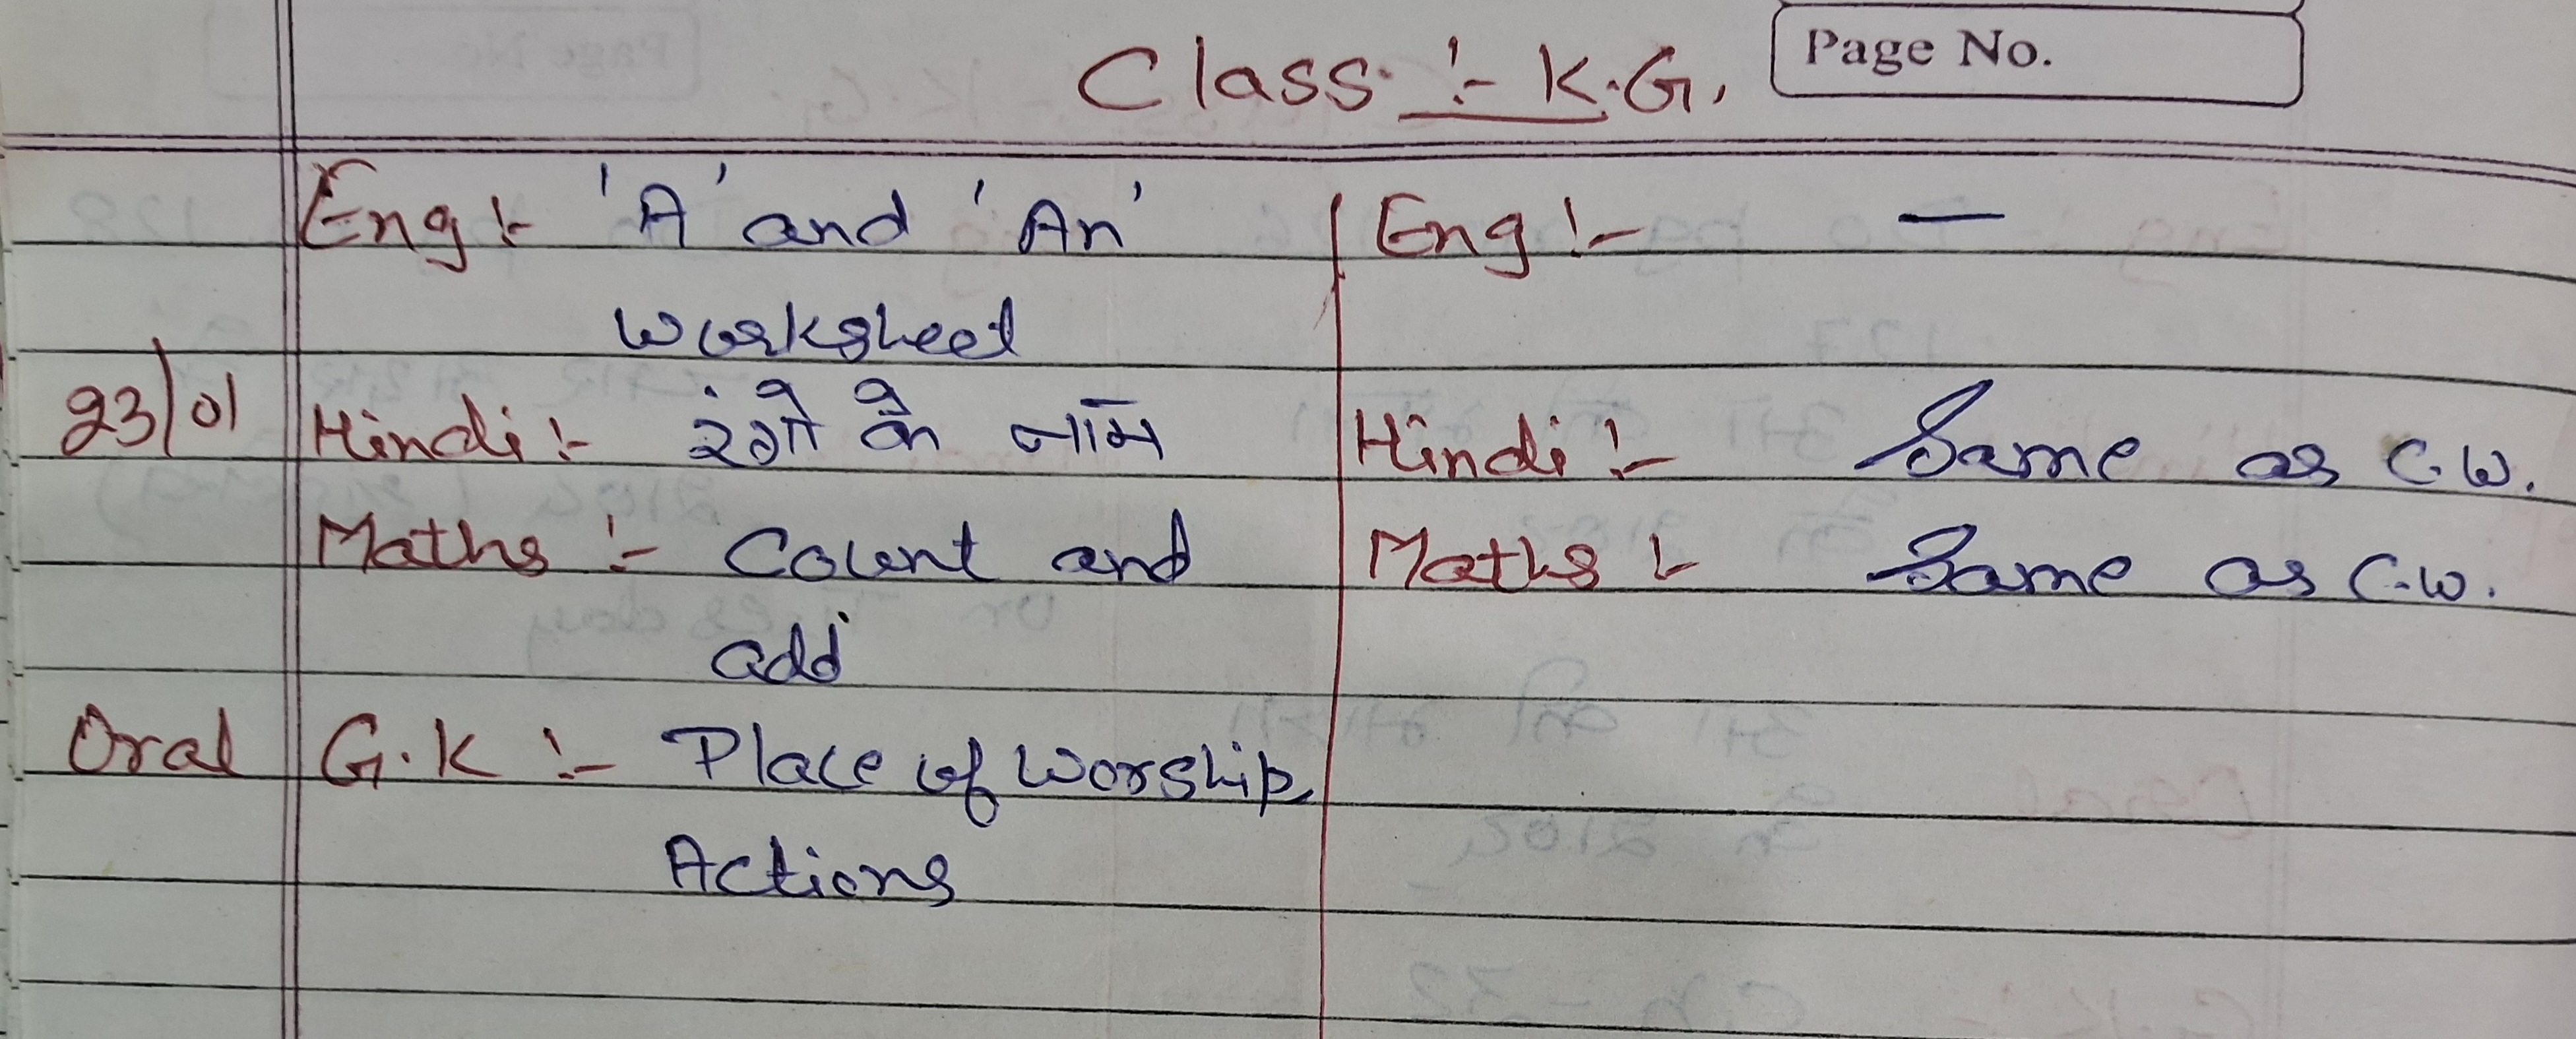 Page No.
Class :- K.G.
Eng :- 'A' and 'An' Eng :- —
worksheet
23/01 Hindi :- रंगो के नाम Hindi :- Same as C.W.
Maths :- Count and Maths :- Same as C.W.
add
Oral G.K :- Place of Worship,
Actions